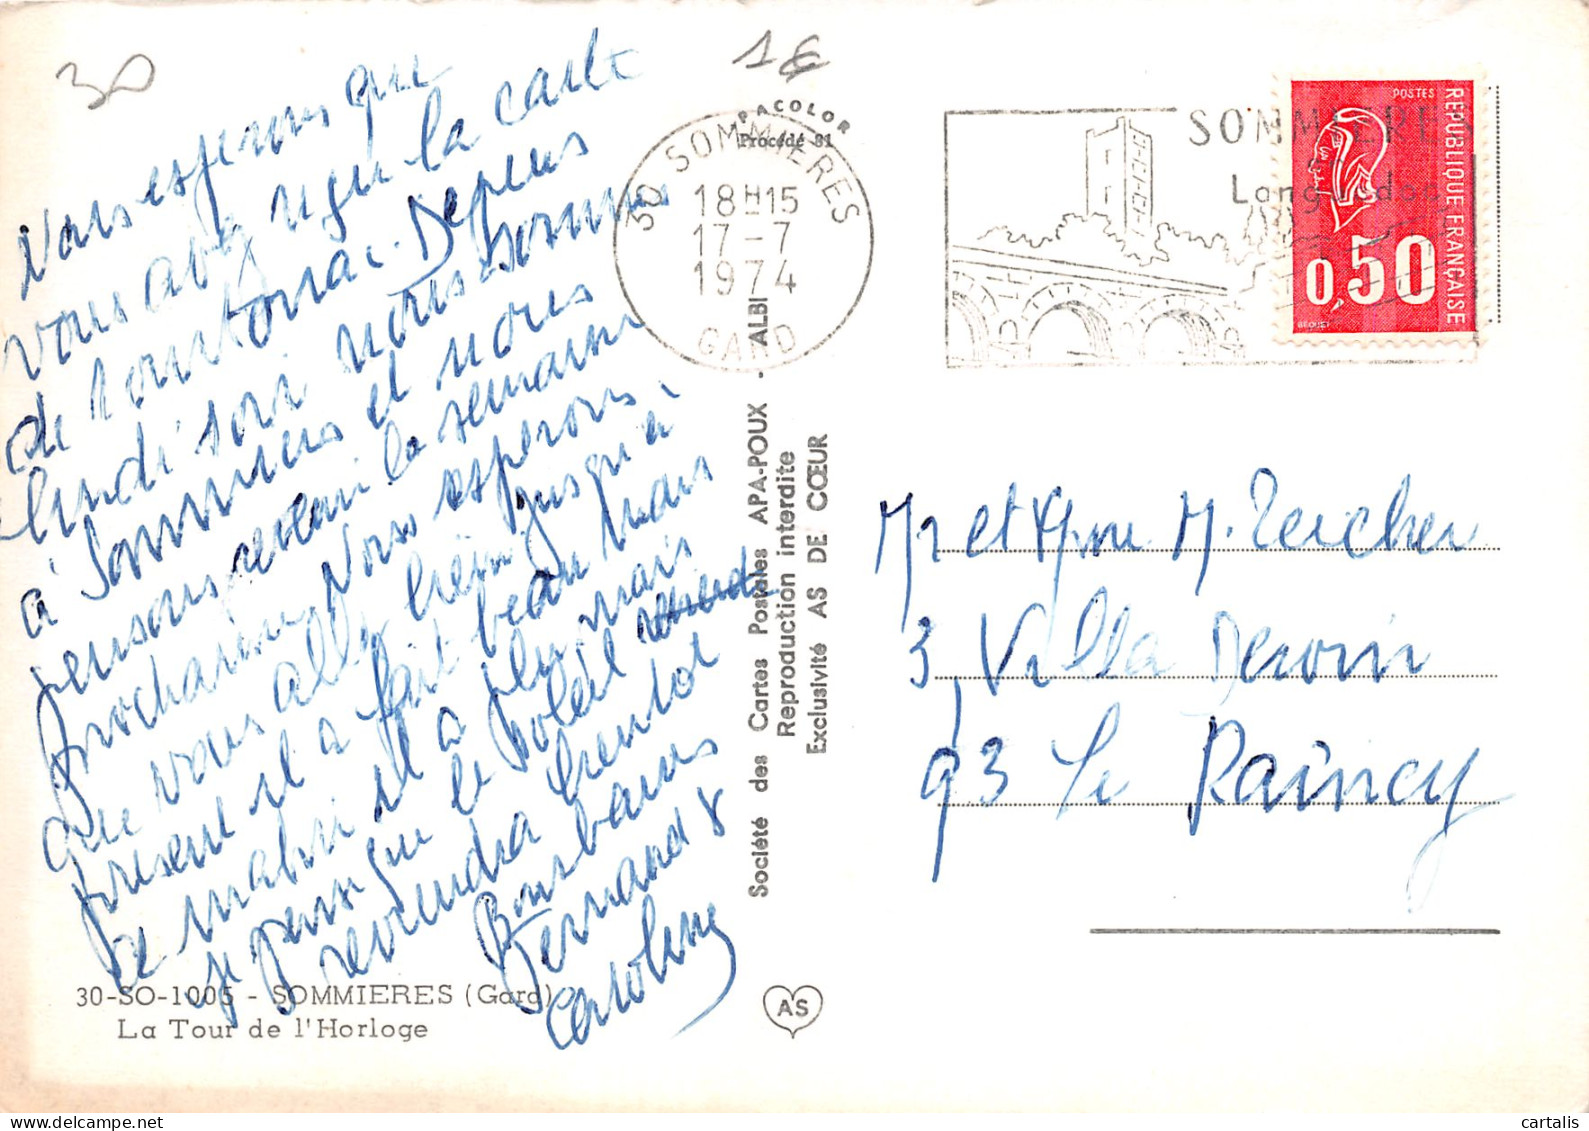 30
1€
Nous esperons que
vous avez reçu la carte
de Montonac. Depuis
lundi soir nous sommes
à Sommières et nous
pensons revenir la semaine
prochaine. Nous esperons
que vous allez bien jusqu'à
présent il a fait beau mais
ce matin il a plu mais
je pense que le soleil
reviendra bientot
Bons baisers
Fernand &
Caroline
30-SO-1005 - SOMMIERES (Gard)
La Tour de l'Horloge
PACOLOR
Procédé 81
Société des Cartes Postales APA-POUX - ALBI
Reproduction interdite
Exclusivité AS DE CŒUR
AS
30 SOMMIERES
18H15
17-7
1974
GARD
SOMMIERES
Languedoc
POSTES
REPUBLIQUE FRANÇAISE
0,50
BEQUET
Mr et Mme M. Teicher
3, Villa Deroin
93 Le Raincy
cartalis